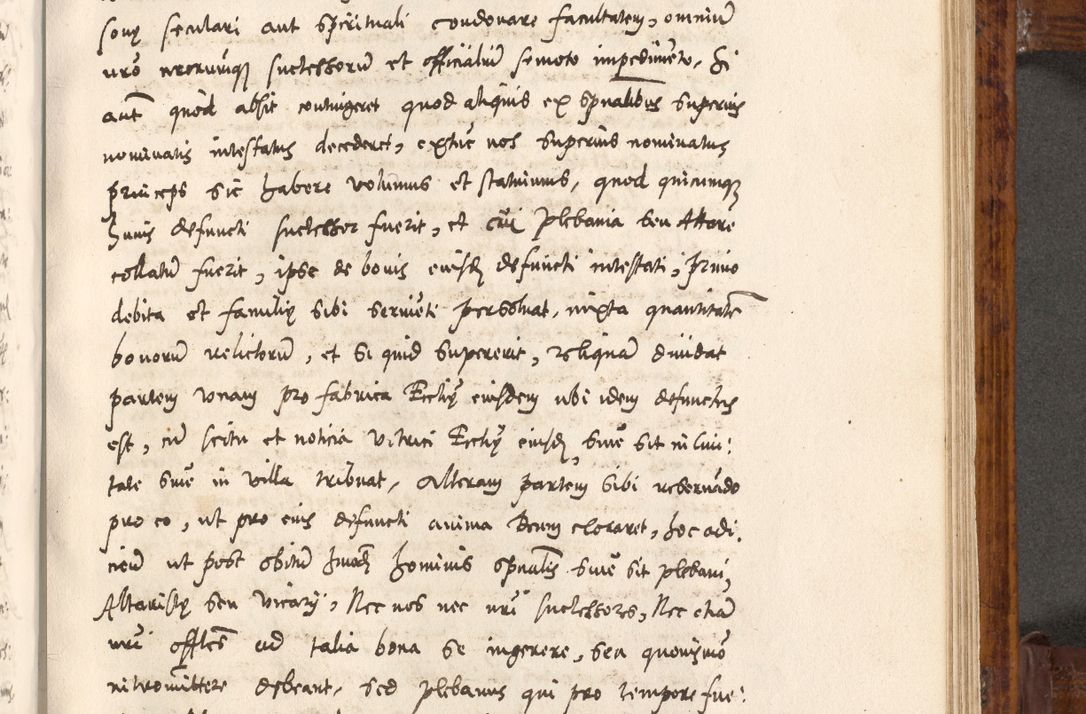 sonę seculari aut spirituali condonare facultatem, omniū
nrō nrorumq̨ successorū et officialiū semoto impedimēto, Si
aut̄ quod absit contingeret quod aliquis ex spūalibus superius
nominatis intestatus decederet, extūc nos superius nominatus
princeps sic habere volumus et statuimus, quod quicunq̨
huius defuncti successor fuerit, et cui Plebania seu Altare
collatū fuerit, ipse de bonis eiusd̨ defuncti intestati, primo
debita et familię sibi serviēti persolvat, iuxta quantitatē
bonorū relictorū, et si quid supererit, reliquam dividat
partem unam pro fabrica Ecclię eiusdem ubi idem defunctus
est, cū scitu et noticia vitrici Ecclię eiusd̨, sive sit in Civi:
tate sive in villa tribuat, Alteram partem sibi reservādo
pro eo, ut pro eius defuncti anima Deum exoraret, hoc adi,
cieñ ut post obitū hmōi hominis spūalis sive sit plebani,
Altaristę seu vicarij, Nec nos nec nrī successores, Nec etiā
nrī offles ad talia bona se ingerere, seu quovismō
intromittere debeant, sed plebanus qui pro tempore fue: